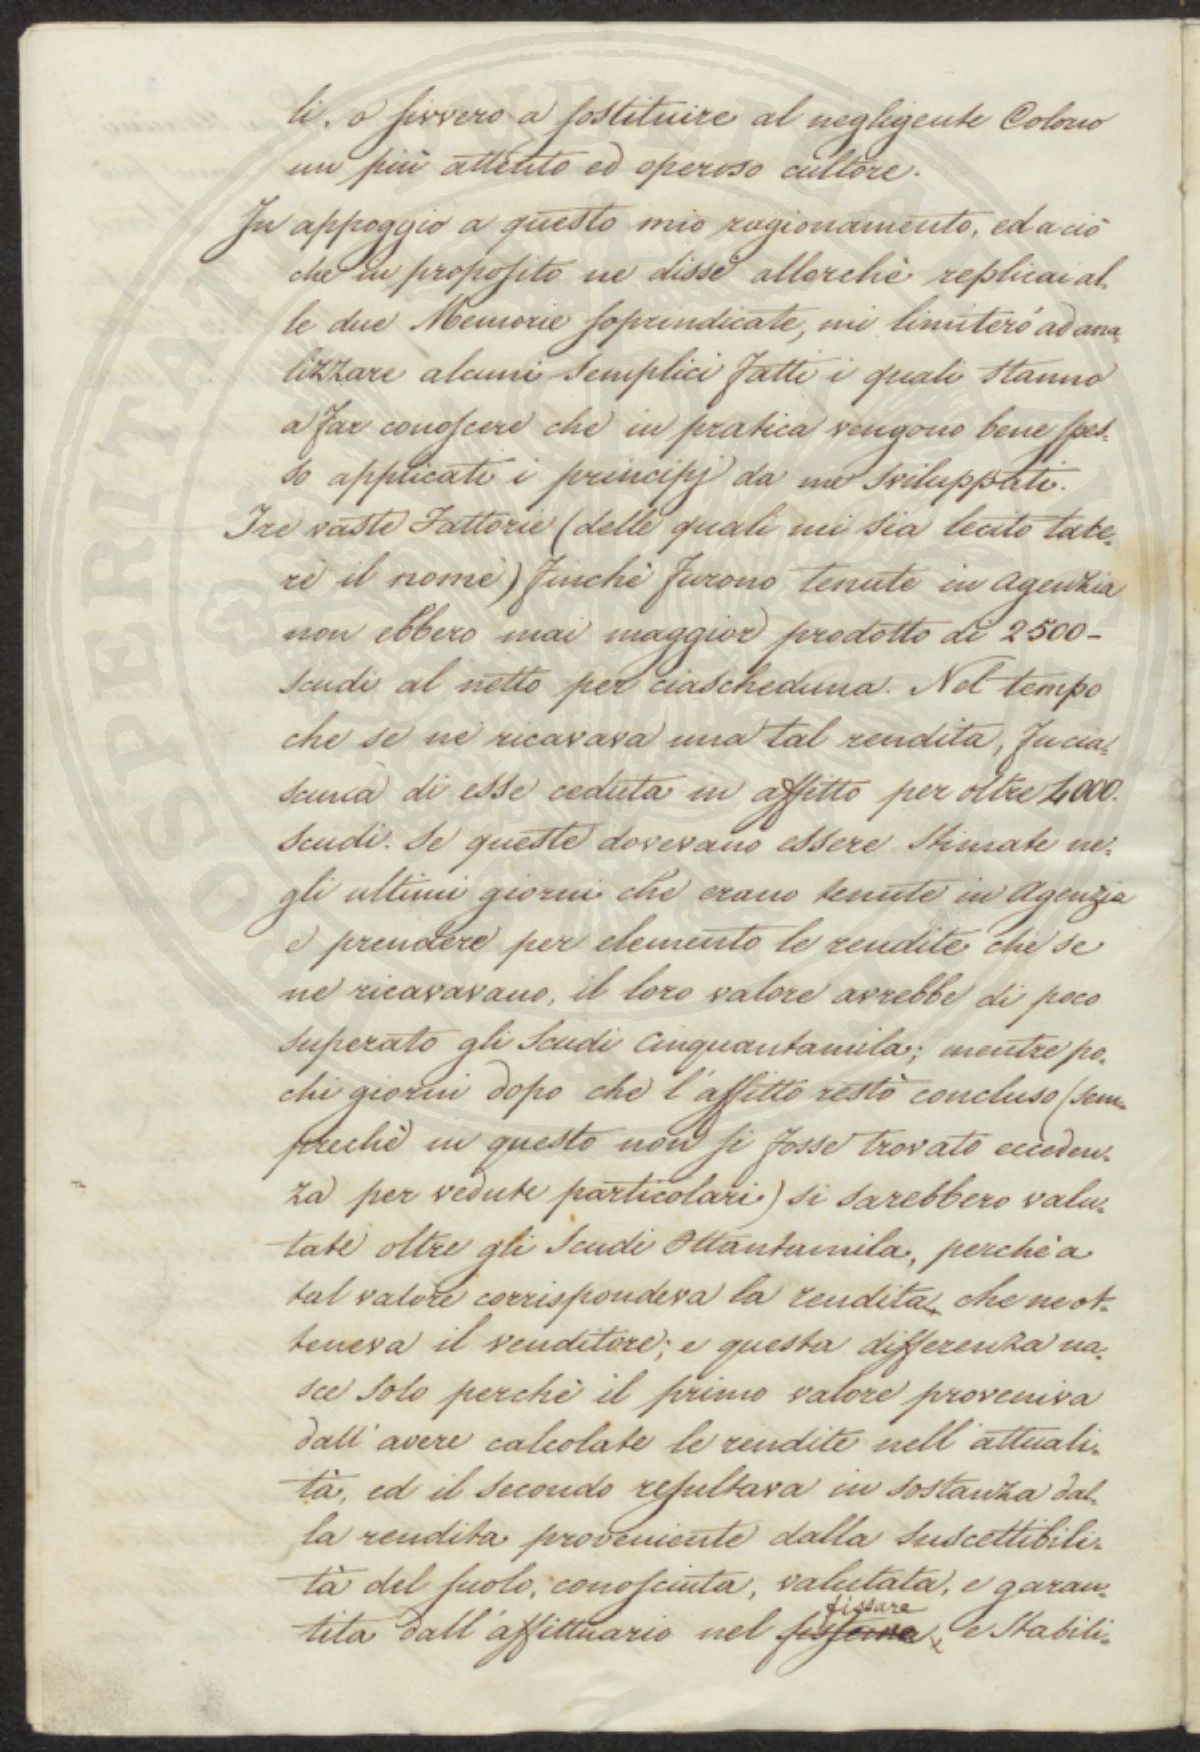 li, o sivvero a sostituire al negligente Colono
un più attento ed operoso cultore.
In appoggio a questo mio ragionamento, ed a ciò
che in proposito ne dissi allorchè replicai al-
le due Memorie soprindicate, mi limiterò ad ana-
lizzare alcuni semplici fatti i quali stanno
a far conoscere che in pratica vengono bene spes-
so applicati i principj da me sviluppati.
Tre vaste Fattorie (delle quali mi sia lecito tace-
re il nome) finchè furono tenute in Agenzia
non ebbero mai maggior prodotto di 2500-
scudi al netto per ciascheduna. Nel tempo
che se ne ricavava una tal rendita, fu cia-
scuna di esse ceduta in affitto per oltre 4000.
scudi. Se queste dovevano essere stimate ne-
gli ultimi giorni che erano tenute in Agenzia
e prendere per elemento le rendite che se
ne ricavavano, il loro valore avrebbe di poco
superato gli Scudi Cinquantamila; mentre po-
chi giorni dopo che l'affitto restò concluso (sem-
prechè in questo non si fosse trovato ecceden-
za per vedute particolari) si sarebbero valu-
tate oltre gli Scudi Ottantamila, perchè a
tal valore corrispondeva la rendita che ne ot-
teneva il venditore; e questa differenza na-
sce solo perchè il primo valore proveniva
dall'avere calcolate le rendite nell'attuali-
tà, ed il secondo resultava in sostanza dal-
la rendita proveniente dalla suscettibili-
tà del suolo, conosciuta, valutata, e garan-
tita dall'affittuario nel fissare e stabili-
PROSPERITATI PUBLICAE